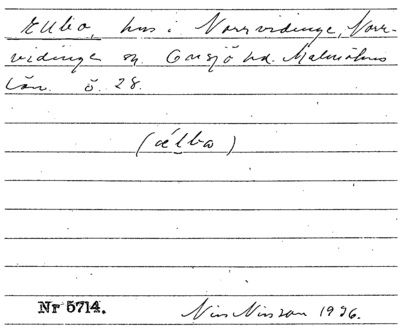 Ellbo, hus i Norrvidinge, Norr-
vidinge sn. Onsjö hd. Malmöhus
län. ö. 28.
(ælbo)
Nr 5714. Nils Nilsson 1926.